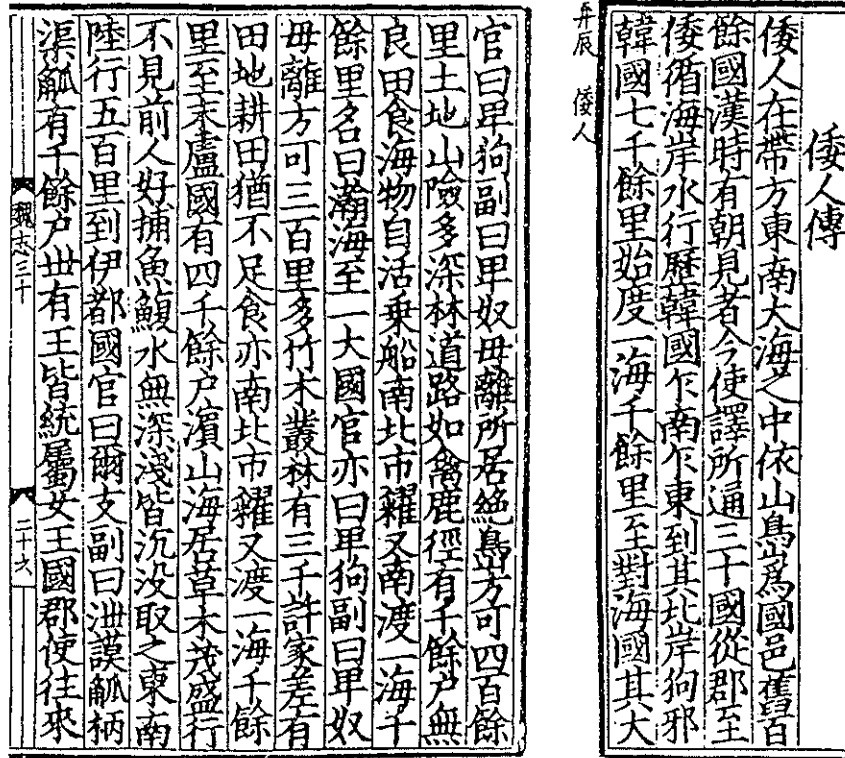 倭人傳
倭人在帶方東南大海之中依山㠀爲國邑舊百
餘國漢時有朝見者今使譯所通三十國從郡至
倭循海岸水行歷韓國乍南乍東到其北岸狗邪
韓國七千餘里始度一海千餘里至對海國其大
弁辰 倭人
官曰卑狗副曰卑奴毋離所居絶㠀方可四百餘
里土地山險多深林道路如禽鹿徑有千餘戶無
良田食海物自活乗船南北市糴又南渡一海千
餘里名曰瀚海至一大國官亦曰卑狗副曰卑奴
毋離方可三百里多竹木叢林有三千許家差有
田地耕田猶不足食亦南北市糴又渡一海千餘
里至末盧國有四千餘戶濵山海居草木茂盛行
不見前人好捕魚鰒水無深淺皆沉没取之東南
陸行五百里到伊都國官曰爾支副曰泄謨觚柄
渠觚有千餘戶丗有王皆統屬女王國郡使往來
魏志三十
二十六